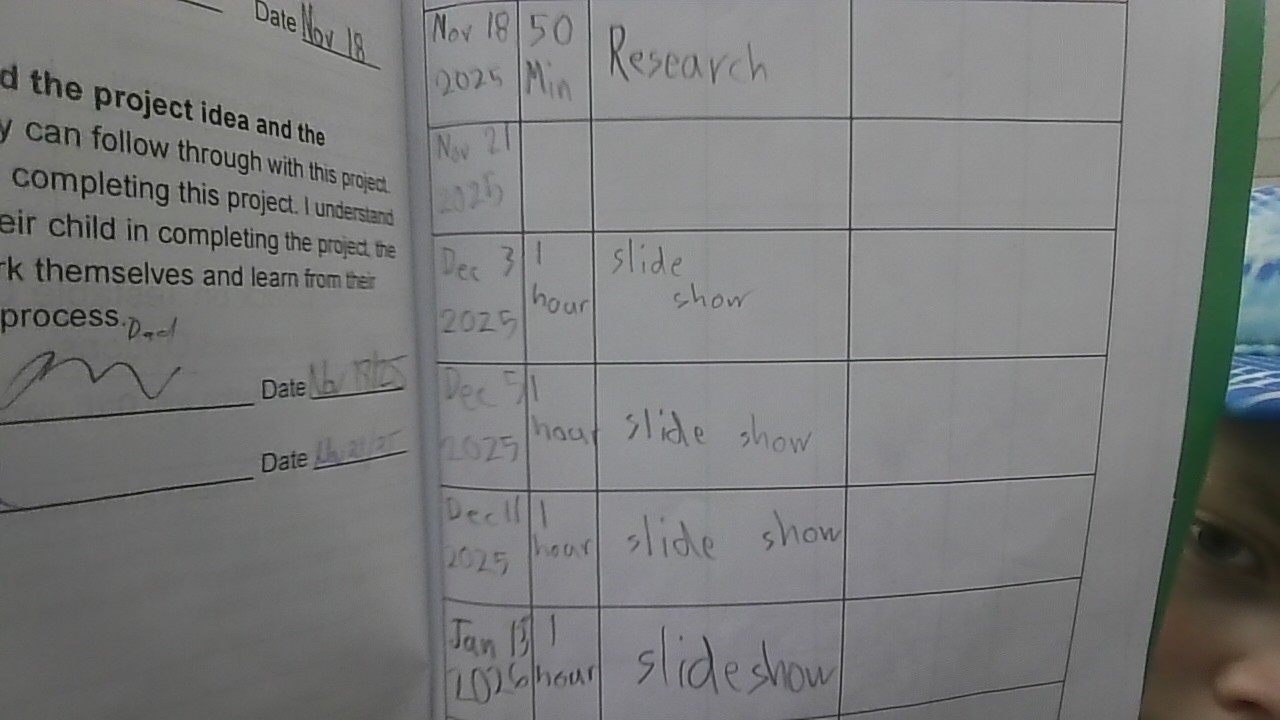 Date Nov 18
d the project idea and the
y can follow through with this project.
completing this project. I understand
eir child in completing the project, the
rk themselves and learn from their
process. Dad
Date Nov 18/25
Date
Nov 18 50 Research
2025 Min
Nov 21
2025
Dec 3 1 slide
2025 hour show
Dec 5 1
2025 hour slide show
Dec 11 1
2025 hour slide show
Jan 13 1
2026 hour slideshow